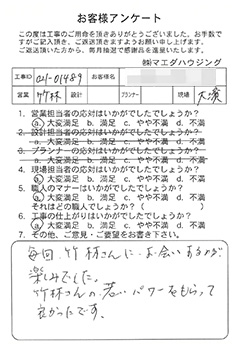 お客様アンケート
この度は工事のご用命を頂きありがとうございました。お手数で
すがご記入頂き、ご返送頂きますようお願い申し上げます。
ご返送頂いた方から、毎月抽選で感謝品を進呈いたします。
㈱マエダハウジング
工事ID 021-01489 お客様名
営業 竹林 設計 プランナー 現場 大濱
1. 営業担当者の応対はいかがでしたでしょうか?
a. 大変満足 b. 満足 c. やや不満 d. 不満
2. 設計担当者の応対はいかがでしたでしょうか?
a. 大変満足 b. 満足 c. やや不満 d. 不満
3. プランナーの応対はいかがでしたでしょうか?
a. 大変満足 b. 満足 c. やや不満 d. 不満
4. 現場担当者の応対はいかがでしたでしょうか?
a. 大変満足 b. 満足 c. やや不満 d. 不満
5. 職人のマナーはいかがでしたでしょうか?
a. 大変満足 b. 満足 c. やや不満 d. 不満
それはどの職人でしょうか?( )
6. 工事の仕上がりはいかがでしたでしょうか?
a. 大変満足 b. 満足 c. やや不満 d. 不満
7. その他、ご意見・ご要望をお書き下さい。
毎回、竹林さんにお会いするのが
楽しみでした。
竹林さんの パワーをもらって
良かったです。